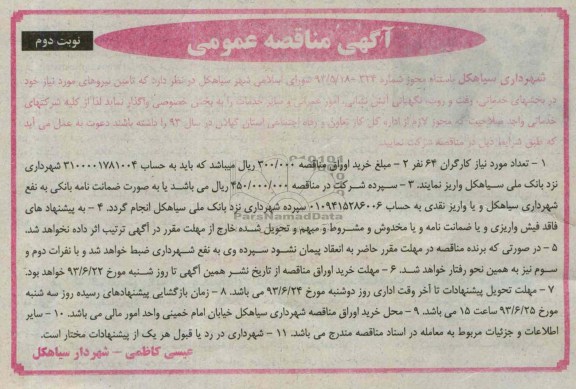 آگهی مناقصه عمومی
نوبت دوم
شهرداری سیاهکل باستناد مجوز شماره ۳۲۴-۹۳/۵/۱۸ شورای اسلامی شهر سیاهکل در نظر دارد که تامین نیروهای مورد نیاز خود
در بخشهای خدماتی، رفت و روب، نگهبانی آتش نشانی، امور عمرانی و سایر خدمات را به بخش خصوصی واگذار نماید لذا از کلیه شرکتهای
خدماتی واجد صلاحیت که مجوز لازم از اداره کل کار تعاون و رفاه اجتماعی استان گیلان در سال ۹۳ را داشته باشند دعوت به عمل می آید
که طبق شرایط ذیل در مناقصه شرکت نمایند.
۱ - تعداد مورد نیاز کارگران ۶۴ نفر ۲ - مبلغ خرید اوراق مناقصه ۳۰۰/۰۰۰ ریال میباشد که باید به حساب ۳۱۰۰۰۰۱۷۸۱۰۰۴ شهرداری
نزد بانک ملی سیاهکل واریز نمایند. ۳ - سپرده شرکت در مناقصه ۴۵۰/۰۰۰/۰۰۰ ریال می باشد یا به صورت ضمانت نامه بانکی به نفع
شهرداری سیاهکل و یا واریز نقدی به حساب ۰۱۰۹۴۱۵۲۸۶۰۰۶ سپرده شهرداری نزد بانک ملی سیاهکل انجام گردد. ۴ - به پیشنهاد های
فاقد فیش واریزی و یا ضمانت نامه و یا مخدوش و مشروط و مبهم و تحویل شده خارج از مهلت مقرر در آگهی ترتیب اثر داده نخواهد شد.
۵ - در صورتی که برنده مناقصه در مهلت مقرر حاضر به انعقاد پیمان نشود سپرده وی به نفع شهرداری ضبط خواهد شد و با نفرات دوم و
سوم نیز به همین نحو رفتار خواهد شد. ۶ - مهلت خرید اوراق مناقصه از تاریخ نشر همین آگهی تا روز شنبه مورخ ۹۳/۶/۲۲ خواهد بود.
۷ - مهلت تحویل پیشنهادات تا آخر وقت اداری روز دوشنبه مورخ ۹۳/۶/۲۴ می باشد. ۸ - زمان بازگشایی پیشنهادهای رسیده روز سه شنبه
مورخ ۹۳/۶/۲۵ ساعت ۱۵ می باشد. ۹ - محل خرید اوراق مناقصه شهرداری سیاهکل خیابان امام خمینی واحد امور مالی می باشد. ۱۰ - سایر
اطلاعات و جزئیات مربوط به معامله در اسناد مناقصه مندرج می باشد. ۱۱ - شهرداری در رد یا قبول هر یک از پیشنهادات مختار است.
عیسی کاظمی - شهردار سیاهکل
ParsNamadData